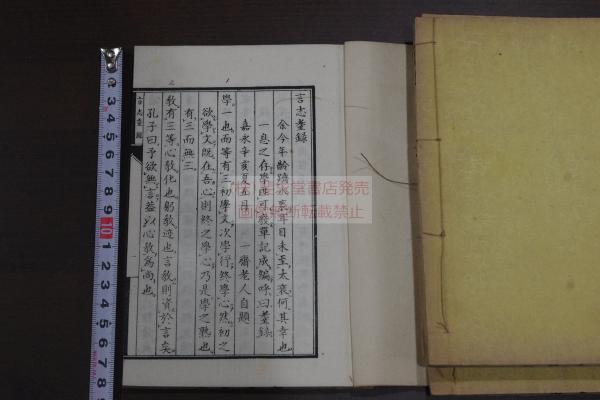 言志耋録
余今年齢躋八秩耳目未至太衰何其幸也
一息之存學匪可廢單記成編呼曰耋錄
嘉永辛亥夏五月　一齋老人自題
學一也而等有三初學文次學行終學心然初之
欲學文既在吾心則終之學心乃是學之熟也
有三而無三
教有三等心教化也躬教迹也言教則資於言矣
孔子曰予欲無言蓋以心教為尚也
言志耋錄
書店発売
画像無断転載禁止
10 9 8 7 6 5 4 3 2 1